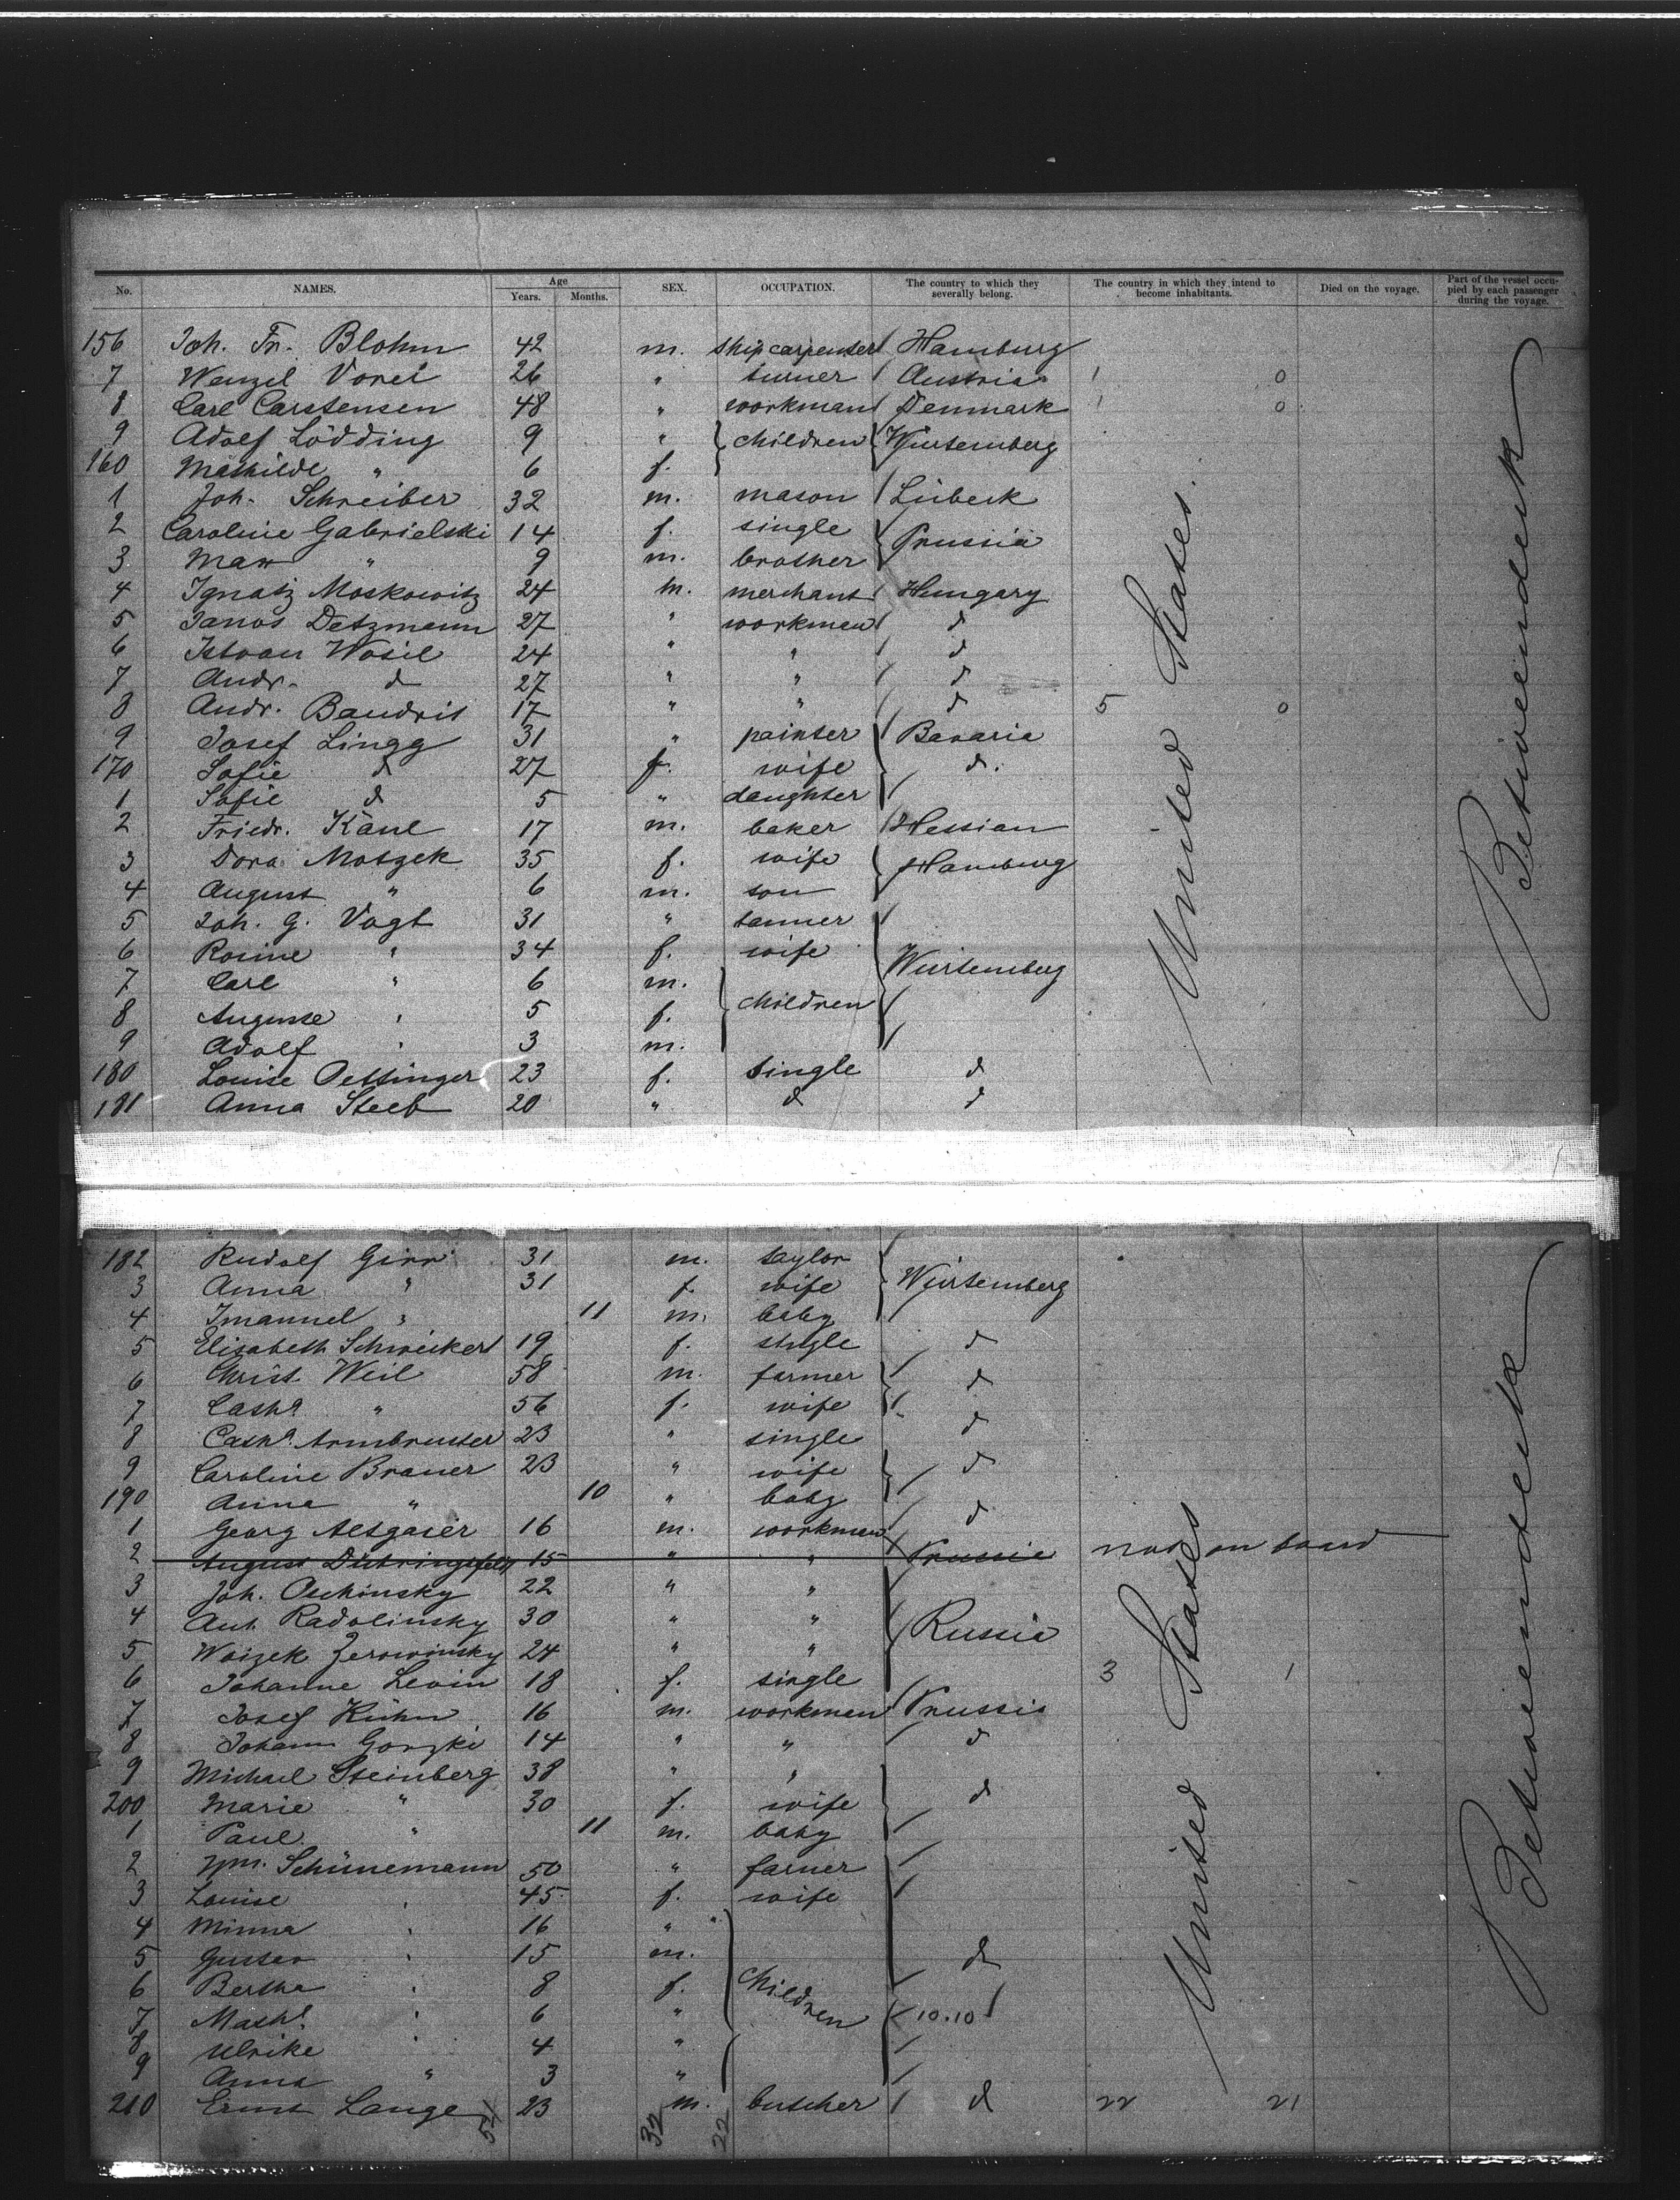 No. NAMES. Age Years. Months. SEX. OCCUPATION. The country to which they severally belong. The country in which they intend to become inhabitants. Died on the voyage. Part of the vessel occupied by each passenger during the voyage.
156 Joh. Fr. Blohm 42 m. ship carpenter Hamburg
7 Wenzel Vorei 26 " turner Austria 1 0
8 Carl Carstensen 48 " workman Denmark 1 0
9 Adolf Lödding 9 " children Würtemberg
160 Mathilde " 6 f.
1 Joh. Schreiber 32 m. mason Lübeck
2 Caroline Gabrielski 14 f. single Prussia
3 Max " 9 m. brother
4 Ignatz Moskowitz 24 m. merchant Hungary
5 Janos Detzmann 27 " workmen d
6 Istvan Wasil 24 " " d
7 Andr. d 27 " " d
8 Andr. Baudris 17 " " d 5 0
9 Josef Lingg 31 " painter Bavaria
170 Sofie d 27 f. wife d.
1 Sofie d 5 " daughter
2 Friedr. Kaul 17 m. baker Hessian
3 Dora Motzek 35 f. wife Hamburg
4 August " 6 m. son
5 Joh. G. Vogt 31 " tanner
6 Rosine " 34 f. wife Würtemberg
7 Carl " 6 m. children
8 Auguste " 5 f.
9 Adolf " 3 m.
180 Louise Oettinger 23 f. single d
181 Anna Steeb 20 " d d
United States.
Between deck
182 Rudolf Girr 31 m. taylor
3 Anna " 31 f. wife Würtemberg
4 Imanuel " 11 m. baby
5 Elisabeth Schweikert 19 f. single d
6 Christ. Weil 58 m. farmer d
7 Cath. " 56 f. wife
8 Cath. Armbruster 23 " single d
9 Caroline Brauer 23 " wife d
190 Anna " 10 " baby
1 Georg Altgaier 16 m. workmen d
2 August Dühringsfeld 15 " " Prussia not on board
3 Joh. Oschinsky 22 " "
4 Ant. Radolinsky 30 " " Russia
5 Woizek Zerwinsky 24 " "
6 Johanne Levin 18 f. single 3 1
7 Josef Kühn 16 m. workmen Prussia
8 Johann Gorzki 14 " " d
9 Michael Steinberg 38 " "
200 Marie " 30 f. wife d
1 Paul " 11 m. baby
2 Wm. Schünemann 50 " farmer
3 Louise " 45 f. wife
4 Minna " 16 "
5 Gustav " 15 m. d
6 Bertha " 8 f. children
7 Math. " 6 " 10.10
8 Ulrike 4 "
9 Anna " 3 "
210 Ernst Lange 23 m. butcher d 22 21
54 32 22
United States
Between deck